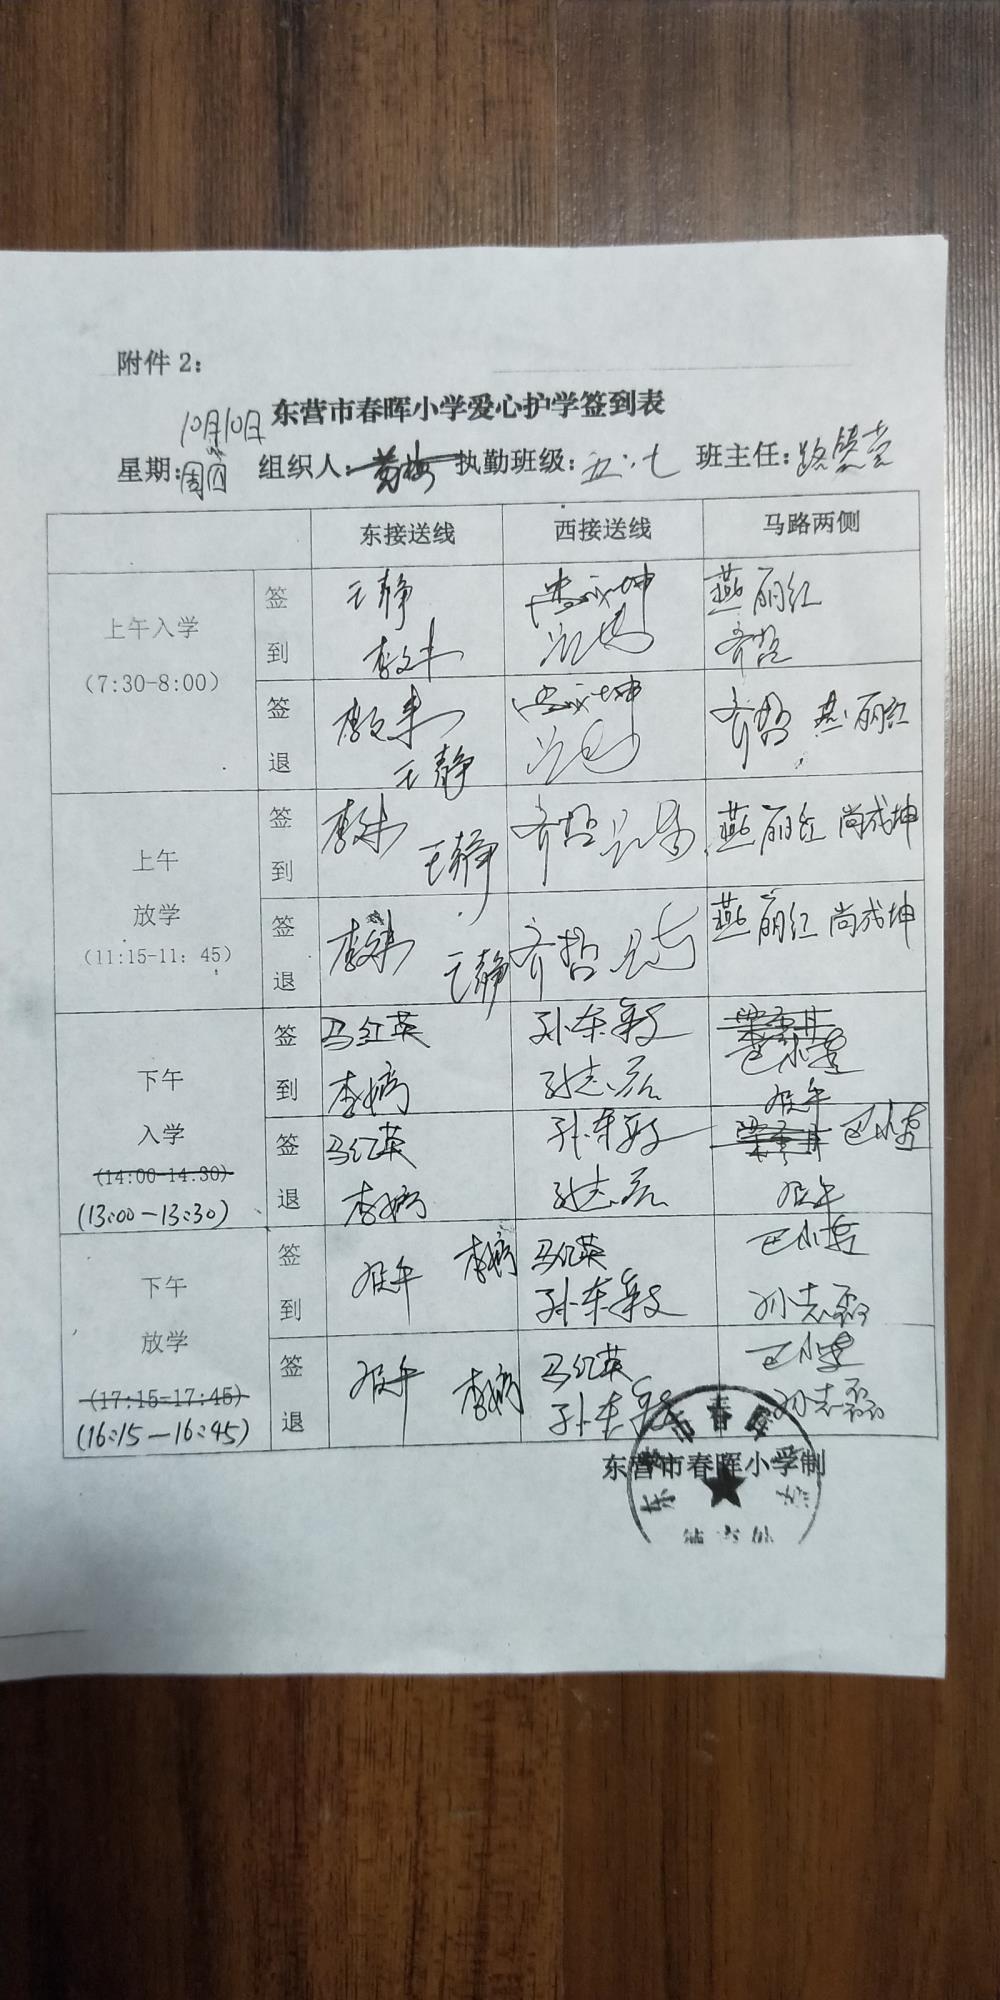 附件 2：
东营市春晖小学爱心护学签到表
10月10日
星期：周四 组织人： 执勤班级：五.七 班主任：路
东接送线 西接送线 马路两侧
上午入学
(7:30-8:00)
签到
王静 尚成坤 燕丽红
李文丰 齐哲
签退
李文丰 尚成坤 齐哲 燕丽红
王静
上午
放学
(11:15-11：45)
签到
李文丰 王静 齐哲 燕丽红 尚成坤
签退
李文丰 王静 齐哲 燕丽红 尚成坤
下午
入学
(14:00-14:30)
(13:00-13:30)
签到
马红英 孙东毅
李娟 孙志磊
签退
马红英 孙东毅
李娟 孙志磊
下午
放学
(17:15-17:45)
(16:15-16:45)
签到
李娟 马红英
孙东毅 孙志磊
签退
李娟 马红英
孙东毅 孙志磊
东营市春晖小学制